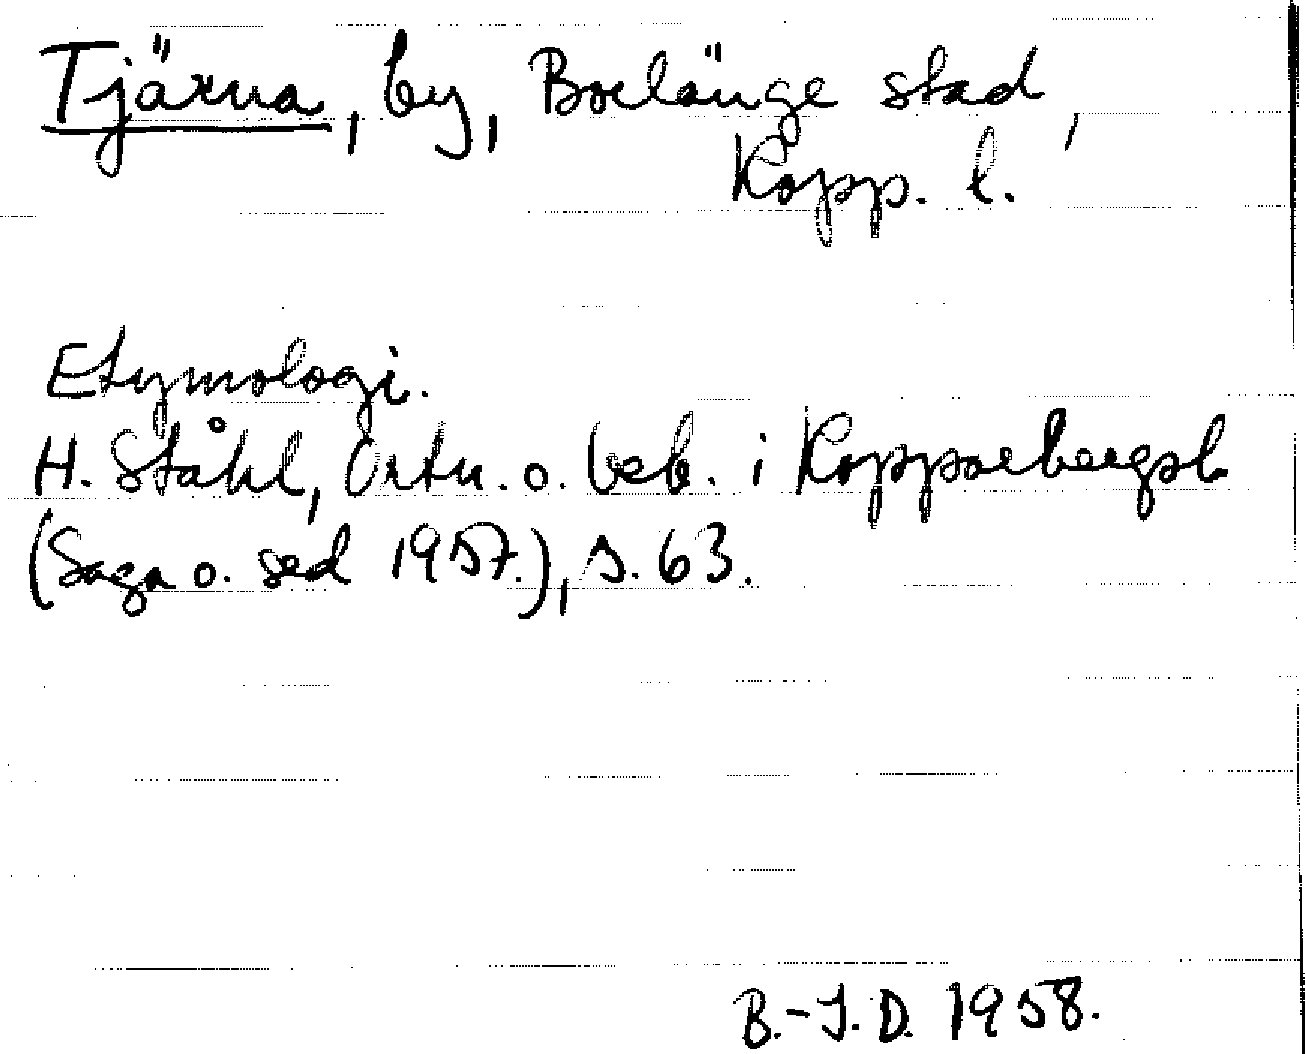 Tjärna, by, Borlänge stad,
Kopp. l.
Etymologi.
H. Ståhl, Ortn. o. beb. i Kopparbergsl.
(Saga o. sed 1957.), s. 63.
B.-J.D. 1958.